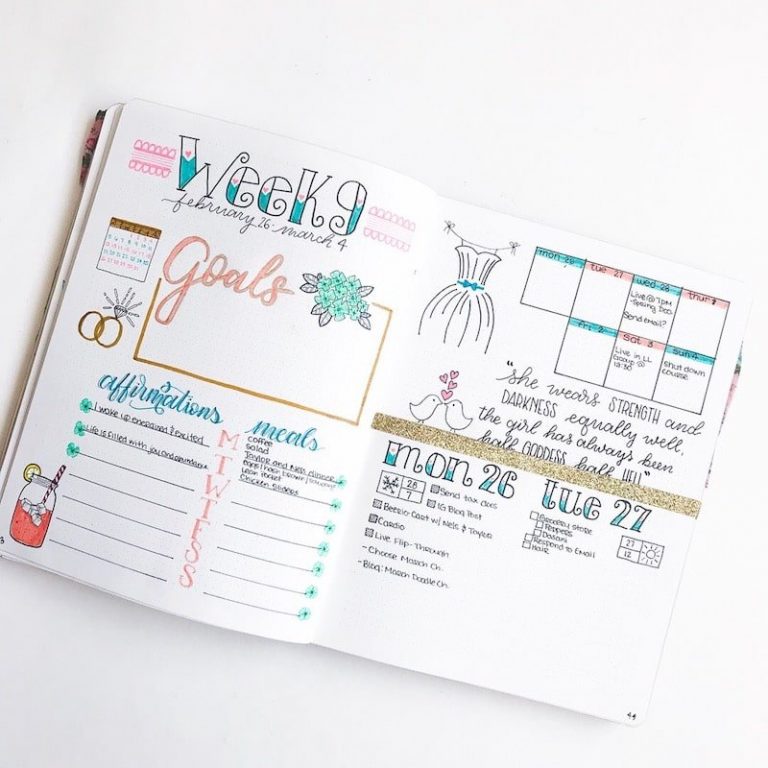 Week 9
february 26 - march 4
Goals
affirmations
I wake up energized & excited
Life is filled with joy and abundance
meals
M
T
W
T
F
S
S
coffee
salad
Taylor and Nels dinner
Chicken
mon 26
tue 27
wed 28
Live @ 7PM
-Spring Doo.
Send email?
thur 1
Fri 2
Sat 3
Live in LL
Group @
12:30
sun 4
shut down
course
"she wears STRENGTH and
DARKNESS equally well,
the girl has always been
half GODDESS half HELL"
mon 26
28
7
Send tax docs
IG Blog Post
Beerio-Cart w/ Nels & Taylor
Cardio
Live Flip-Through
- Choose March Ch.
- Blog: March Doodle Ch.
tue 27
Grocery store
Peppers
Dasani
Respond to Email
Hair
27
12
44